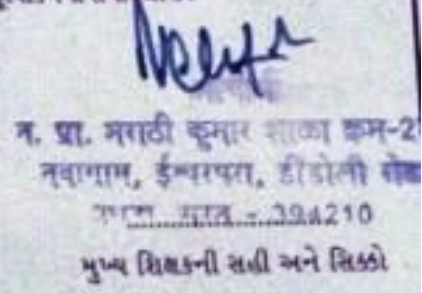 न. प्रा. मराठी कुमार शाळा क्रम-2
नवागाम, ईश्वरपरा, डींडोली रोड
394210
મુખ્ય શિક્ષકની સહી અને સિક્કો